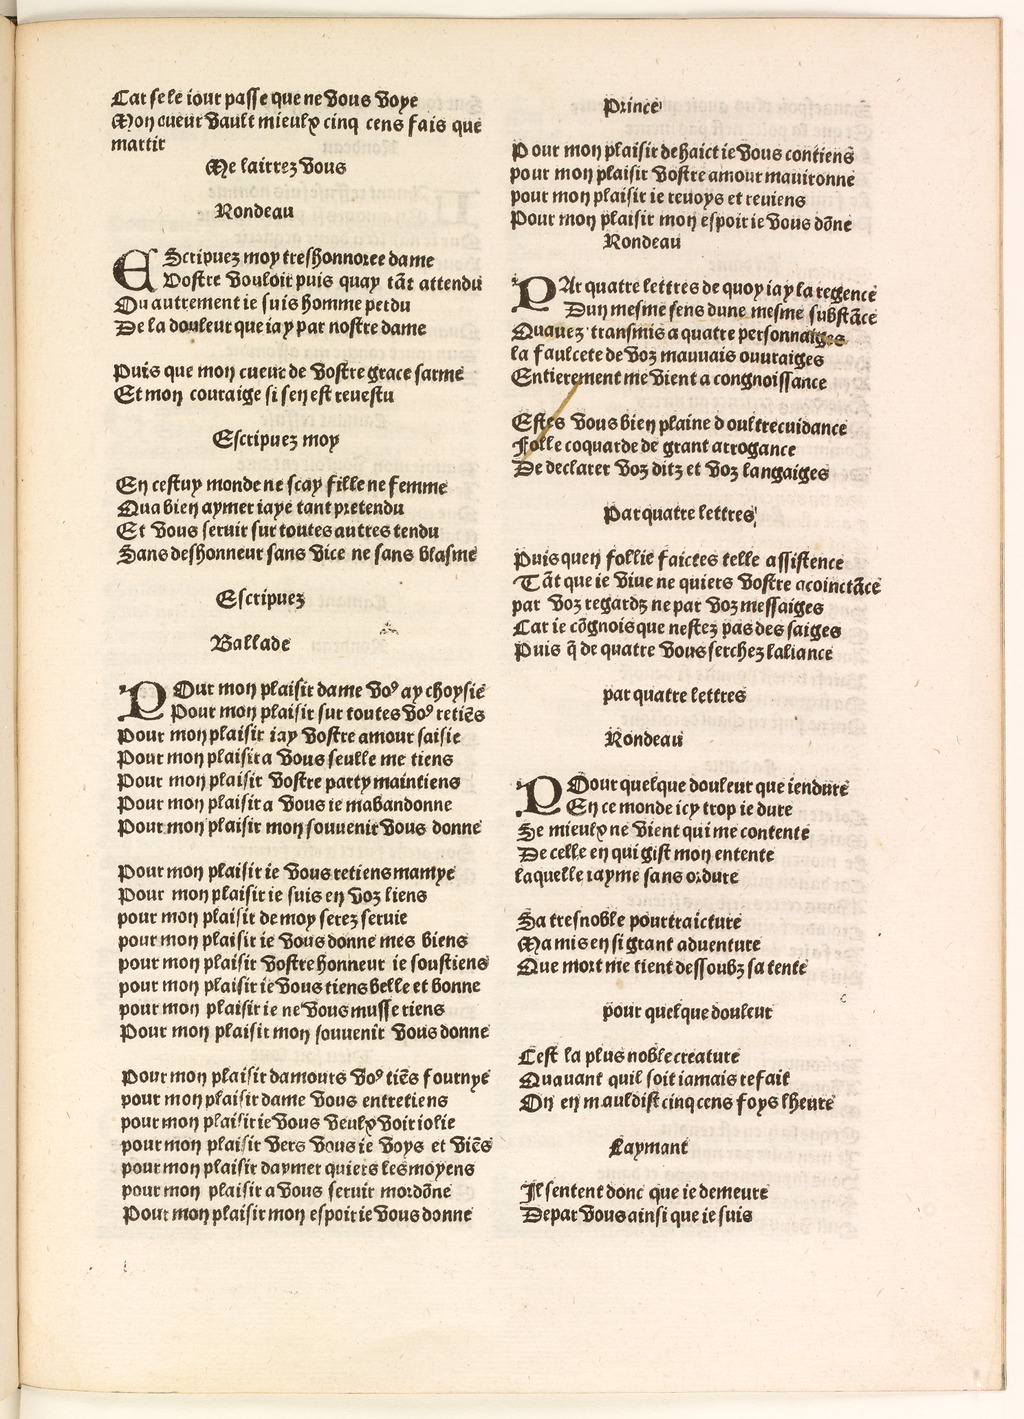 Car se le iour passe que ne vous voye
Mon cueur vault mieulx cinq cens fais que
martir
Me lairrez vous
Rondeau
EScripuez moy treshonnoree dame
Vostre vouloir puis quay tāt attendu
Ou autrement ie suis homme perdu
De la douleur que iay par nostre dame
Puis que mon cueur de vostre grace sarme
Et mon couraige si sen est reuestu
Escripuez moy
En cestuy monde ne scay fille ne femme
Qua bien aymer iaye tant pretendu
Et vous seruir sur toutes autres tendu
Sans deshonneur sans vice ne sans blasme
Escripuez
Ballade
POur mon plaisir dame voꝰ ay choysie
Pour mon plaisir sur toutes voꝰ retiēs
Pour mon plaisir iay vostre amour saisie
Pour mon plaisir a vous seulle me tiens
Pour mon plaisir vostre party maintiens
Pour mon plaisir a vous ie mabandonne
Pour mon plaisir mon souuenir vous donne
Pour mon plaisir ie vous retiens mamye
Pour mon plaisir ie suis en voz liens
pour mon plaisir de moy serez seruie
pour mon plaisir ie vous donne mes biens
pour mon plaisir vostre honneur ie soustiens
pour mon plaisir ie vous tiens belle et bonne
pour mon plaisir ie ne vous musse riens
Pour mon plaisir mon souuenir vous donne
Pour mon plaisir damours voꝰ tiēs fournye
pour mon plaisir dame vous entretiens
pour mon plaisir ie vous veulx voir iolie
pour mon plaisir vers vous ie voys et viēs
pour mon plaisir daymer quiers les moyens
pour mon plaisir a vous seruir mordōne
Pour mon plaisir mon espoir ie vous donne
Prince
Pour mon plaisir dehaict ie vous contiens
pour mon plaisir vostre amour mauironne
pour mon plaisir ie reuoys et reuiens
Pour mon plaisir mon espoir ie vous dōne
Rondeau
PAr quatre lettres de quoy iay la regence
Dun mesme sens dune mesme substāce
Quauez transmis a quatre personnaiges
la faulcete de voz mauuais ouuraiges
Entierement me vient a congnoissance
Estes vous bien plaine doultrecuidance
Folle coquarde de grant arrogance
De declarer voz ditz et voz langaiges
Par quatre lettres
Puis quen follie faictes telle assistence
Tāt que ie viue ne quiers vostre acoinctāce
par voz regardz ne par voz messaiges
Car ie cōgnois que nestez pas des saiges
Puis q̄ de quatre vous serchez laliance
par quatre lettres
Rondeau
POour quelque douleur que iendure
En ce monde icy trop ie dure
Se mieulx ne vient qui me contente
De celle en qui gist mon entente
laquelle iayme sans ordure
Sa tresnoble pourtraicture
Ma mis en si grant aduenture
Que mort me tient dessoubz sa tente
pour quelque douleur
Cest la plus noble creature
Quauant quil soit iamais refait
On en mauldist cinq cens foys lheure
Laymant
Il sentent donc que ie demeure
De par vous ainsi que ie suis